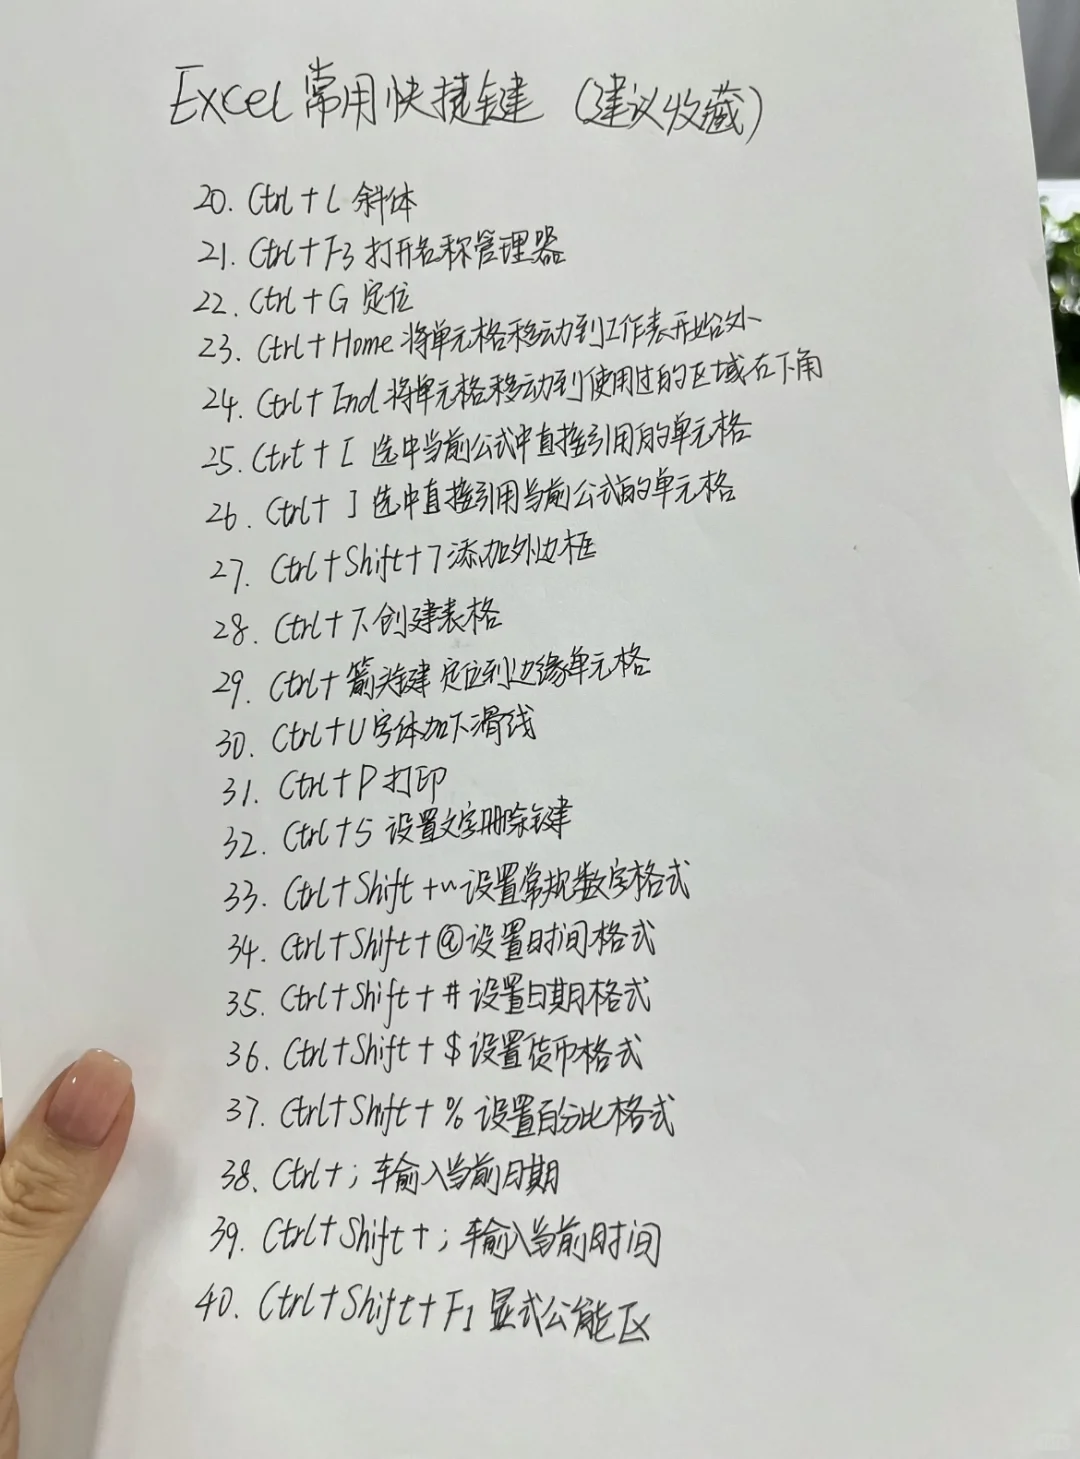 Excel常用快捷键（建议收藏）
20. Ctrl+L 斜体
21. Ctrl+F3 打开名称管理器
22. Ctrl+G 定位
23. Ctrl+Home 将单元格移动到工作表开始处
24. Ctrl+End 将单元格移动到使用过的区域右下角
25. Ctrl+[ 选中当前公式中直接引用的单元格
26. Ctrl+] 选中直接引用当前公式的单元格
27. Ctrl+Shift+7 添加外边框
28. Ctrl+T 创建表格
29. Ctrl+箭头键 定位到边缘单元格
30. Ctrl+U 字体加下滑线
31. Ctrl+P 打印
32. Ctrl+5 设置文字删除键
33. Ctrl+Shift+~ 设置常规数字格式
34. Ctrl+Shift+@ 设置时间格式
35. Ctrl+Shift+# 设置日期格式
36. Ctrl+Shift+$ 设置货币格式
37. Ctrl+Shift+% 设置百分比格式
38. Ctrl+; 输入当前日期
39. Ctrl+Shift+; 输入当前时间
40. Ctrl+Shift+F1 显式公能区